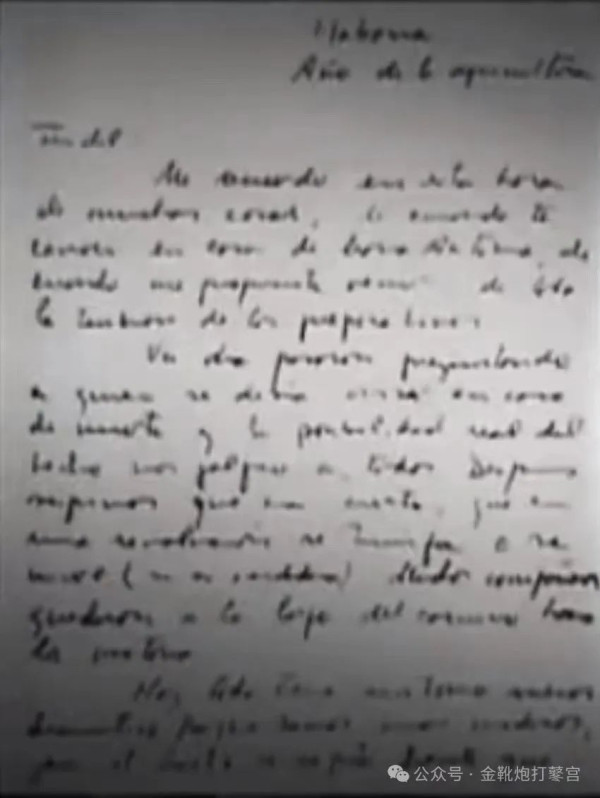 Habana
Año de la agricultura
Fidel
Me acuerdo en esta hora
de muchas cosas, de cuando te
conocí en casa de María Antonia, de
cuando me propusiste venir, de toda
la tensión de los preparativos
Un día pasaron preguntando
a quien se debía avisar en caso
de muerte y la posibilidad real del
hecho nos golpeó a todos Después
supimos que era cierto, que en
una revolución se triunfa o se
muere (si es verdadera) Muchos compañeros
quedaron a lo largo del camino hacia
la victoria
Hoy todo tiene un tono menos
dramático porque somos más maduros,
pero el hecho se repite
公众号 · 金靴炮打鼕宫